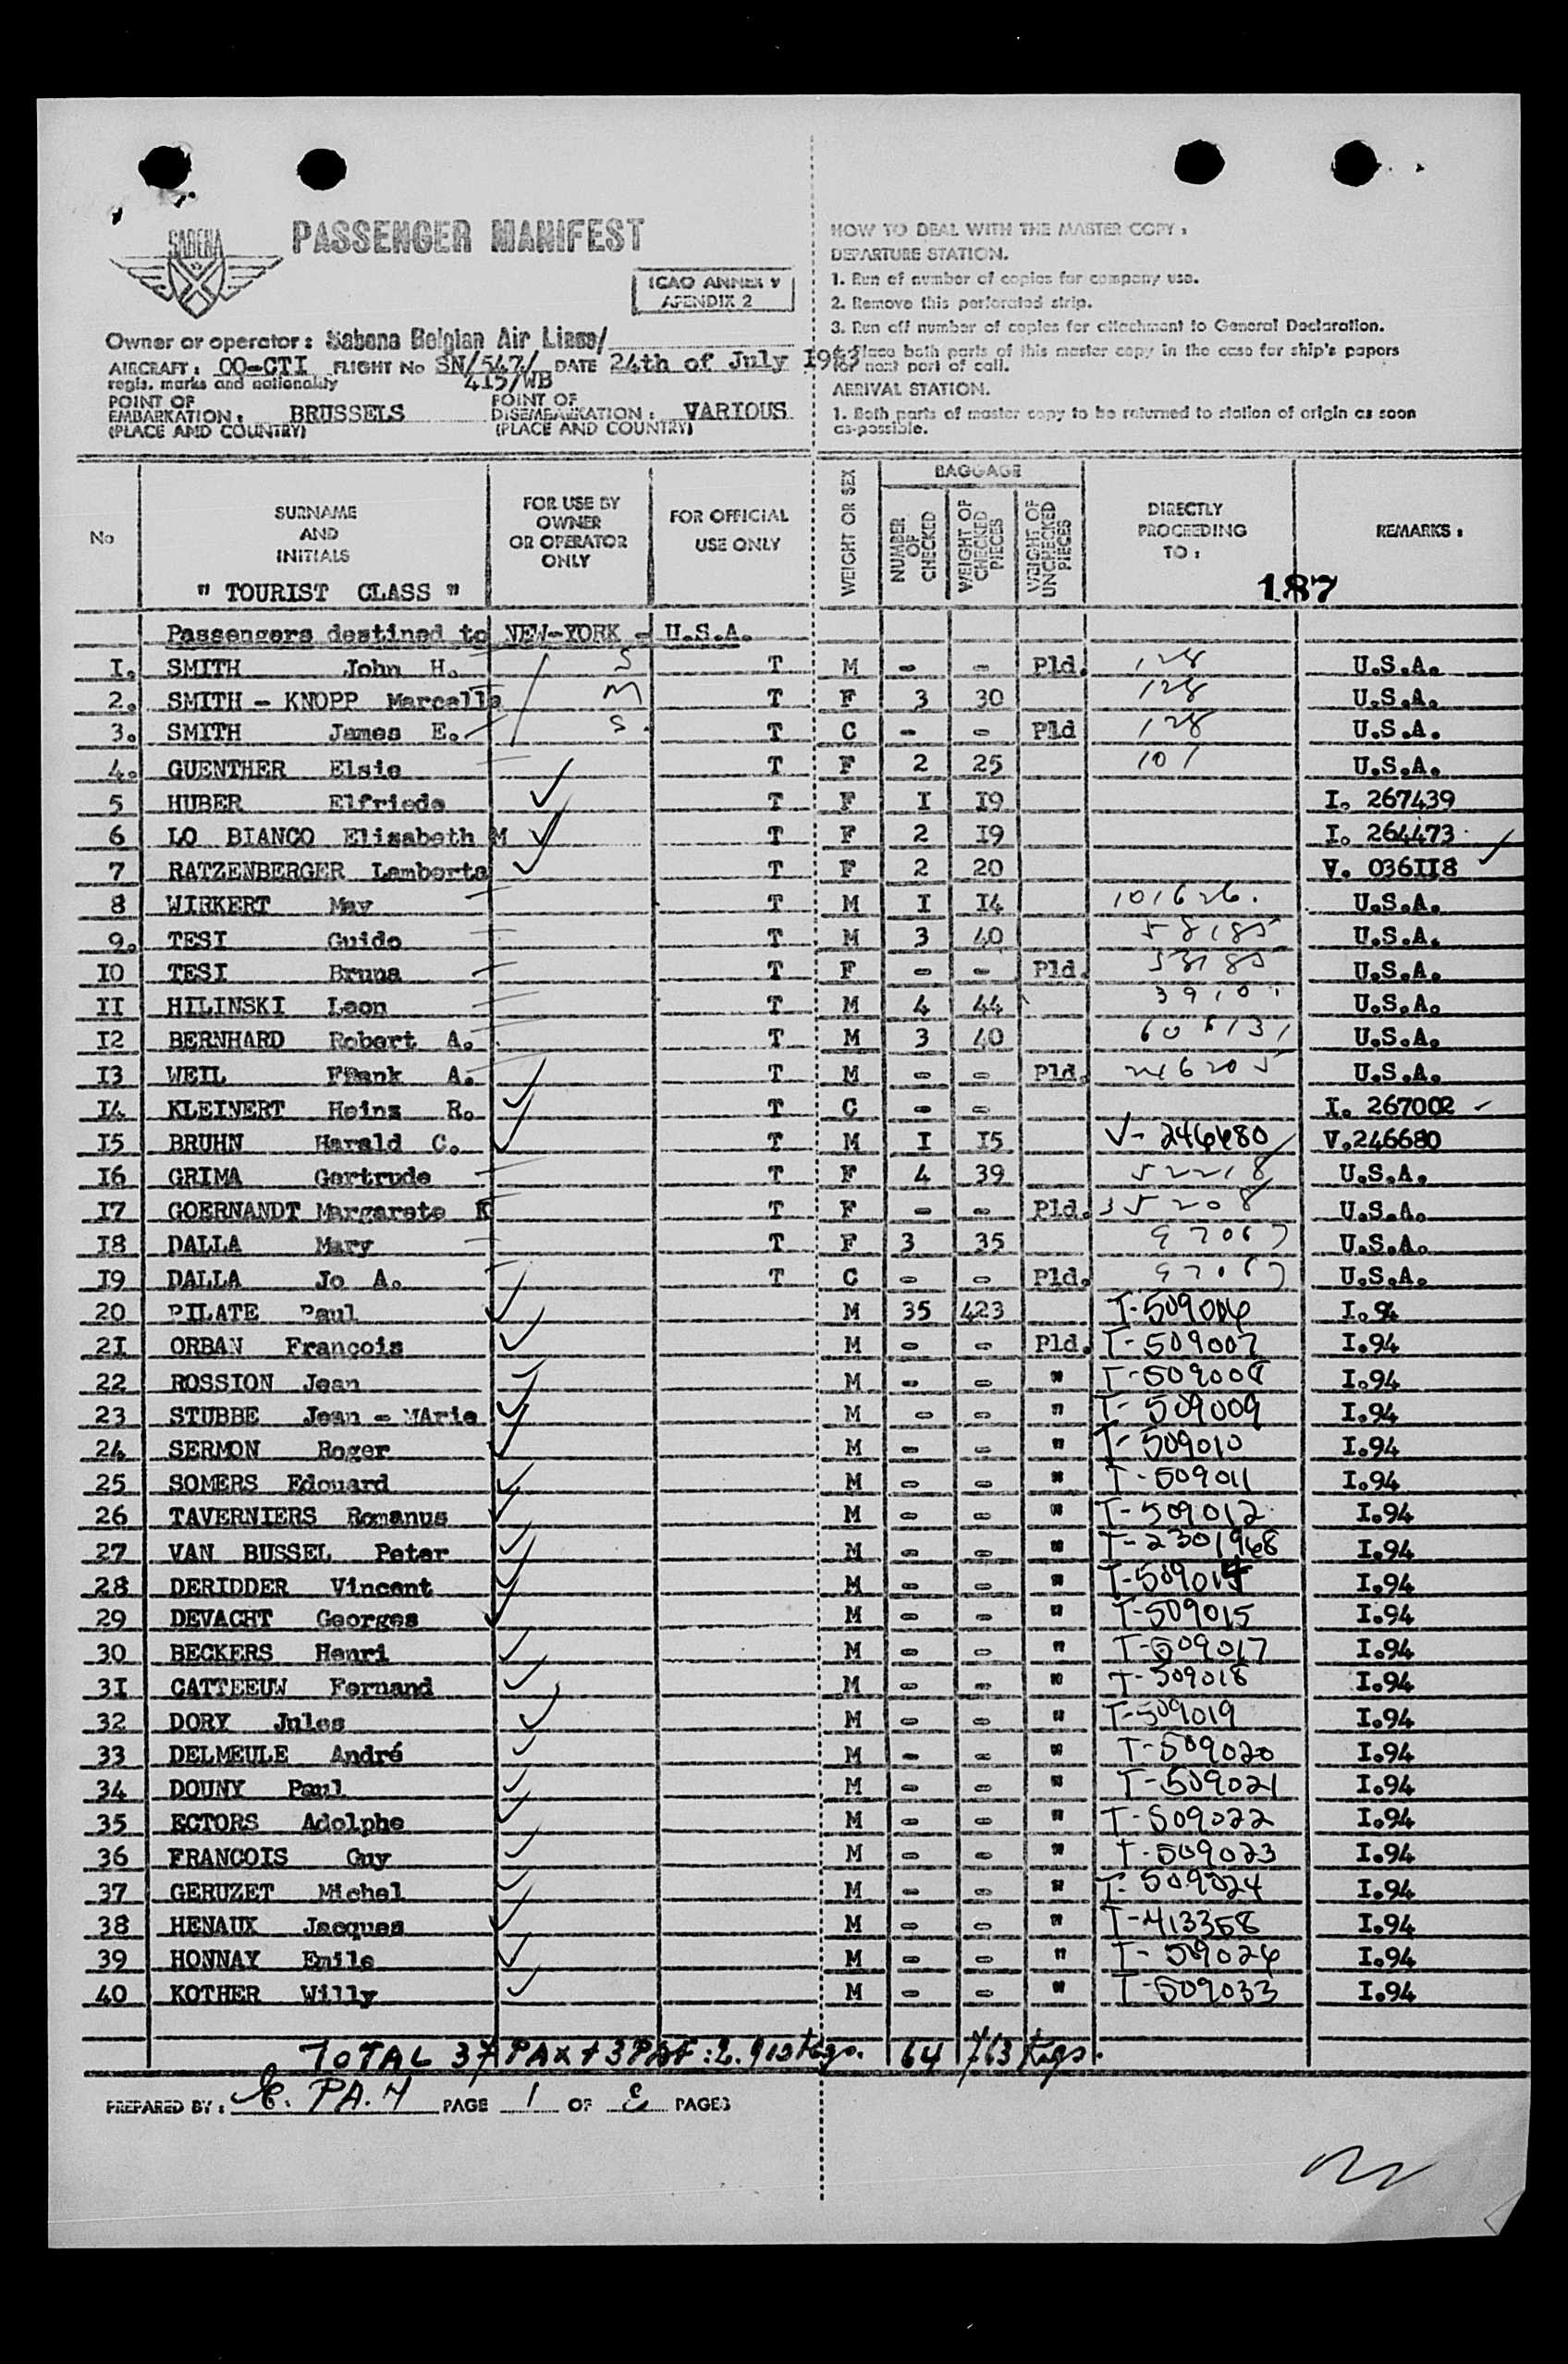 SABENA
PASSENGER MANIFEST
ICAO ANNEX 9
APENDIX 2
Owner or operator: Sabena Belgian Air Lines/
AIRCRAFT: OO-CTI FLIGHT No SN/547/ DATE 24th of July 1953
regis. marks and nationality 415/WB
POINT OF EMBARKATION: BRUSSELS POINT OF DISEMBARKATION: VARIOUS
(PLACE AND COUNTRY) (PLACE AND COUNTRY)
HOW TO DEAL WITH THE MASTER COPY:
DEPARTURE STATION.
1. Run of number of copies for company use.
2. Remove this perforated strip.
3. Run off number of copies for attachment to General Declaration.
4. Place both parts of this master copy in the case for ship's papers
for next port of call.
ARRIVAL STATION.
1. Both parts of master copy to be returned to station of origin as soon
as possible.
No SURNAME AND INITIALS FOR USE BY OWNER OR OPERATOR ONLY FOR OFFICIAL USE ONLY WEIGHT OR SEX BAGGAGE NUMBER OF CHECKED WEIGHT OF CHECKED PIECES WEIGHT OF UNCHECKED PIECES DIRECTLY PROCEEDING TO: REMARKS:
" TOURIST CLASS " 187
Passengers destined to NEW-YORK - U.S.A.
I. SMITH John H. S T M - - Pld. 128 U.S.A.
2. SMITH - KNOPP Marcelle M T F 3 30 128 U.S.A.
3. SMITH James E. S. T C - - Pld 128 U.S.A.
4. GUENTHER Elsie T F 2 25 101 U.S.A.
5 HUBER Elfriede T F I I9 I. 267439
6 LO BIANCO Elisabeth M T F 2 I9 I. 264473
7 RATZENBERGER Lamberta T F 2 20 V. 036II8
8 WIRKERT May T M I I4 101626. U.S.A.
9. TESI Guido T M 3 40 58185 U.S.A.
IO TESI Bruna T F - - Pld. 58185 U.S.A.
II HILINSKI Leon T M 4 44 U.S.A.
I2 BERNHARD Robert A. T M 3 40 U.S.A.
I3 WEIL Frank A. T M - - Pld. 246205 U.S.A.
I4 KLEINERT Heinz R. T C - - I. 267002
I5 BRUHN Harald C. T M I I5 V- 246680 V.246680
I6 GRIMA Gertrude T F 4 39 52218 U.S.A.
I7 GOERNANDT Margarete K T F - - Pld. 35208 U.S.A.
I8 DALLA Mary T F 3 35 97067 U.S.A.
I9 DALLA Jo A. T C - - Pld. 97067 U.S.A.
20 PILATE Paul M 35 423 T-509006 I.94
2I ORBAN François M - - Pld. T-509007 I.94
22 ROSSION Jean M - - " T-509008 I.94
23 STUBBE Jean - MArie M - - " T-509009 I.94
24 SERMON Roger M - - " T-509010 I.94
25 SOMERS Edouard M - - " T-509011 I.94
26 TAVERNIERS Romanus M - - " T-509012 I.94
27 VAN BUSSEL Peter M - - " T-2301968 I.94
28 DERIDDER Vincent M - - " T-509014 I.94
29 DEVACHT Georges M - - " T-509015 I.94
30 BECKERS Henri M - - " T-509017 I.94
3I CATTEEUW Fernand M - - " T-509018 I.94
32 DORY Jules M - - " T-509019 I.94
33 DELMEULE André M - - " T-509020 I.94
34 DOUNY Paul M - - " T-509021 I.94
35 ECTORS Adolphe M - - " T-509022 I.94
36 FRANCOIS Guy M - - " T-509023 I.94
37 GERUZET Michel M - - " T-509024 I.94
38 HENAUX Jacques M - - " T-413358 I.94
39 HONNAY Emile M - - " T-509026 I.94
40 KOTHER Willy M - - " T-509033 I.94
TOTAL 37 PAX + 3 : 2.910 kgs. 64 763 kgs.
PREPARED BY: PAGE 1 OF 2 PAGES